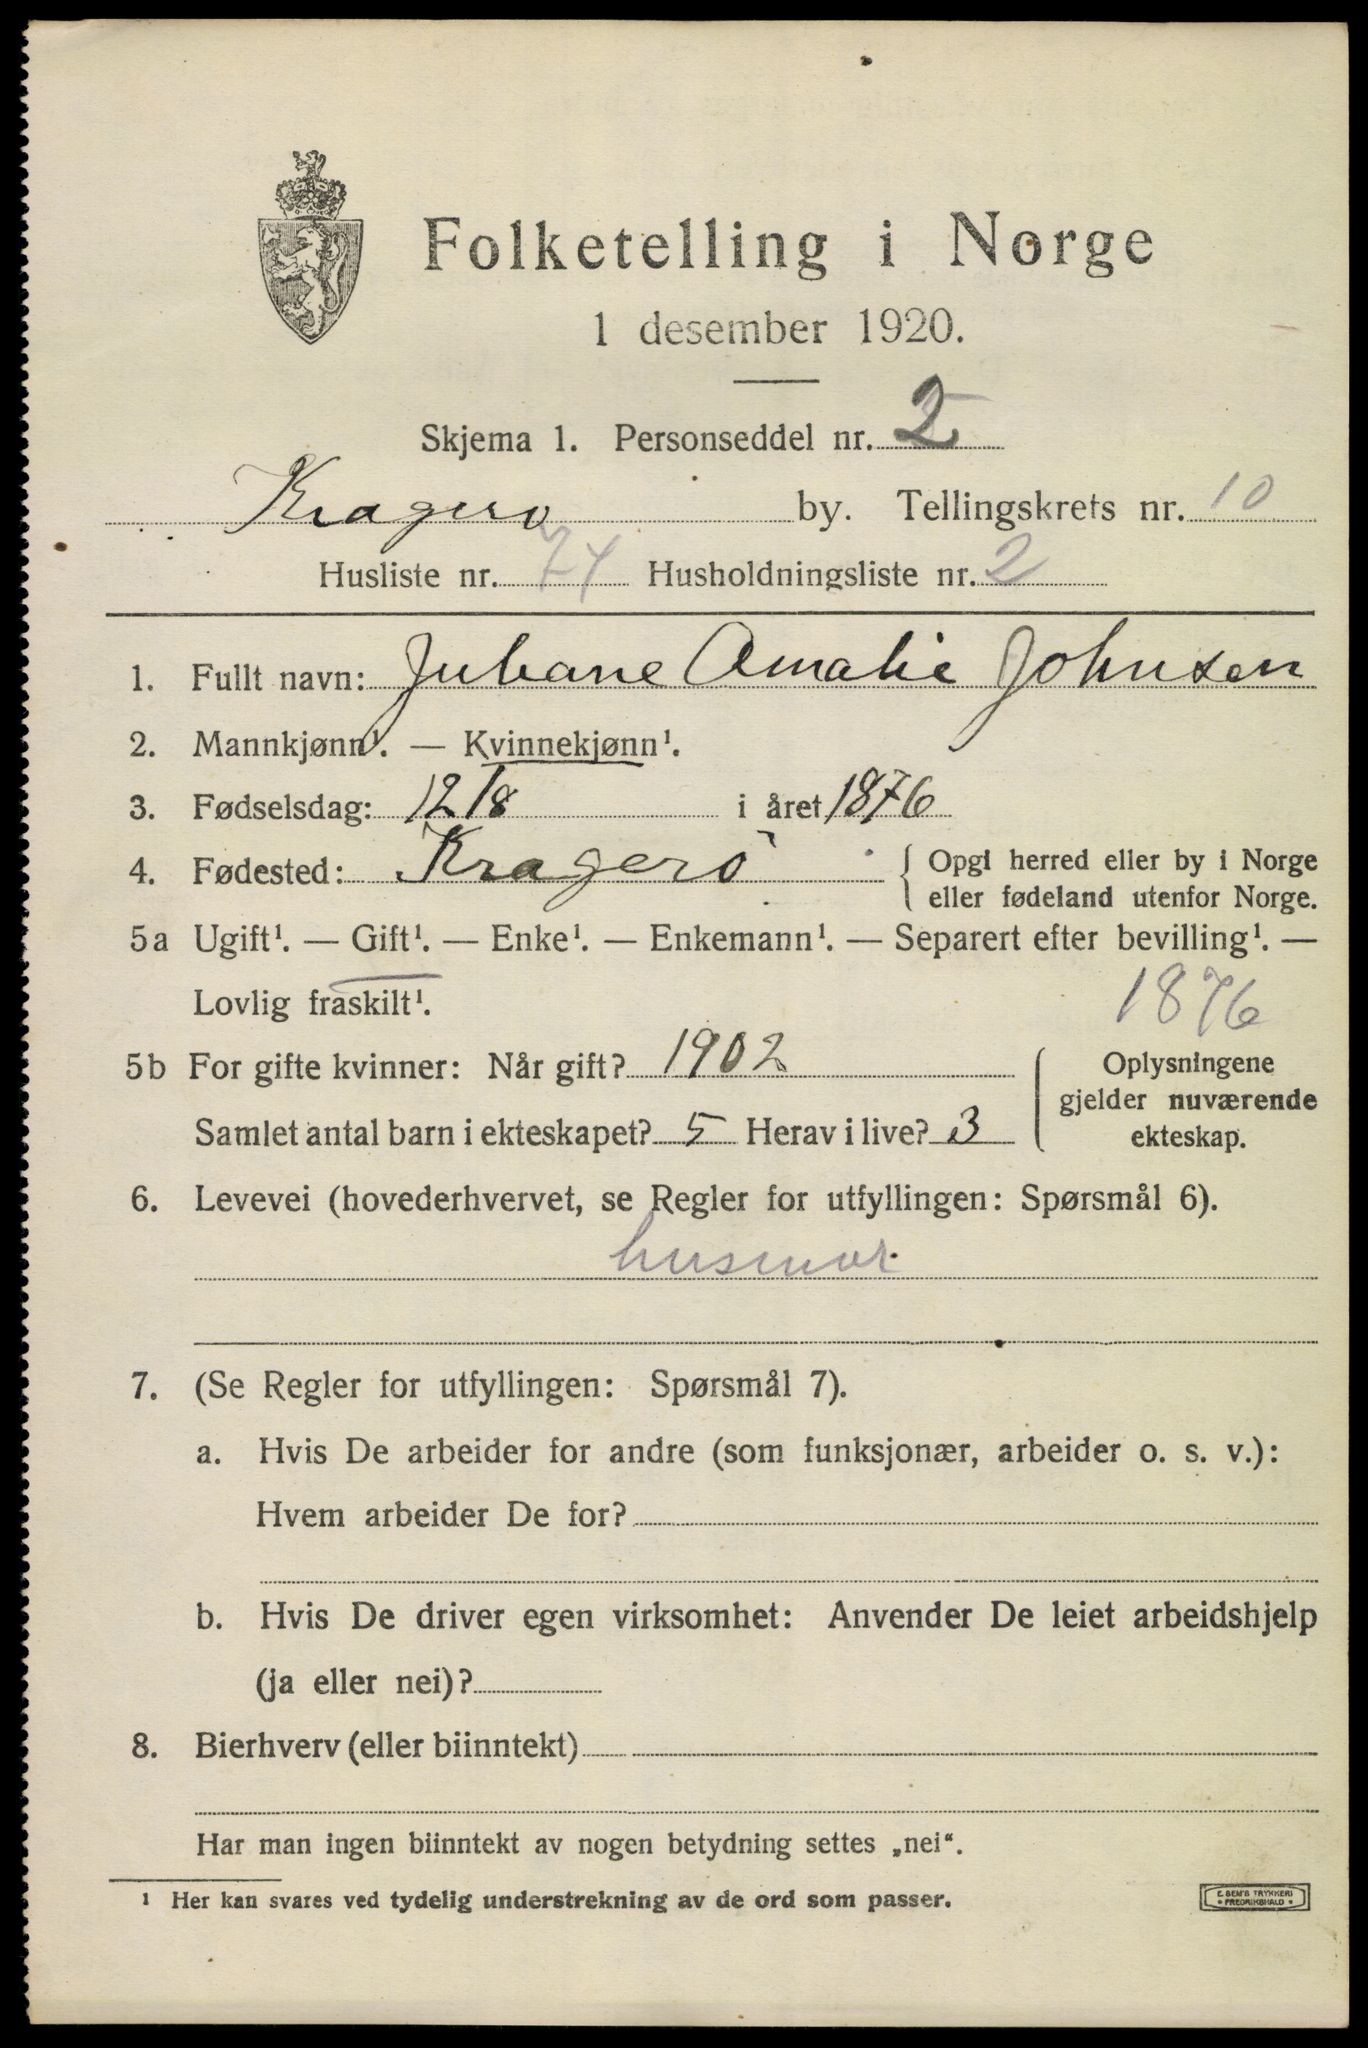 Folketelling i Norge
1 desember 1920.
Skjema 1. Personseddel nr. 2
Kragerø by. Tellingskrets nr. 10
Husliste nr. 74 Husholdningsliste nr. 2
1. Fullt navn: Juliane Amalie Johnsen
2. Mannkjønn¹. — Kvinnekjønn¹.
3. Fødselsdag: 12/8 i året 1876
4. Fødested: Kragerö { Opgi herred eller by i Norge
eller fødeland utenfor Norge.
5a Ugift¹. — Gift¹. — Enke¹. — Enkemann¹. — Separert efter bevilling¹. —
Lovlig fraskilt¹. 1876
5b For gifte kvinner: Når gift? 1902
Samlet antal barn i ekteskapet? 5 Herav i live? 3
Oplysningene
gjelder nuværende
ekteskap.
6. Levevei (hovederhvervet, se Regler for utfyllingen: Spørsmål 6).
husmor
7. (Se Regler for utfyllingen: Spørsmål 7).
a. Hvis De arbeider for andre (som funksjonær, arbeider o. s. v.):
Hvem arbeider De for?
b. Hvis De driver egen virksomhet: Anvender De leiet arbeidshjelp
(ja eller nei)?
8. Bierhverv (eller biinntekt)
Har man ingen biinntekt av nogen betydning settes „nei“.
¹ Her kan svares ved tydelig understrekning av de ord som passer.
E. SEM'S TRYKKERI
FREDRIKSHALD